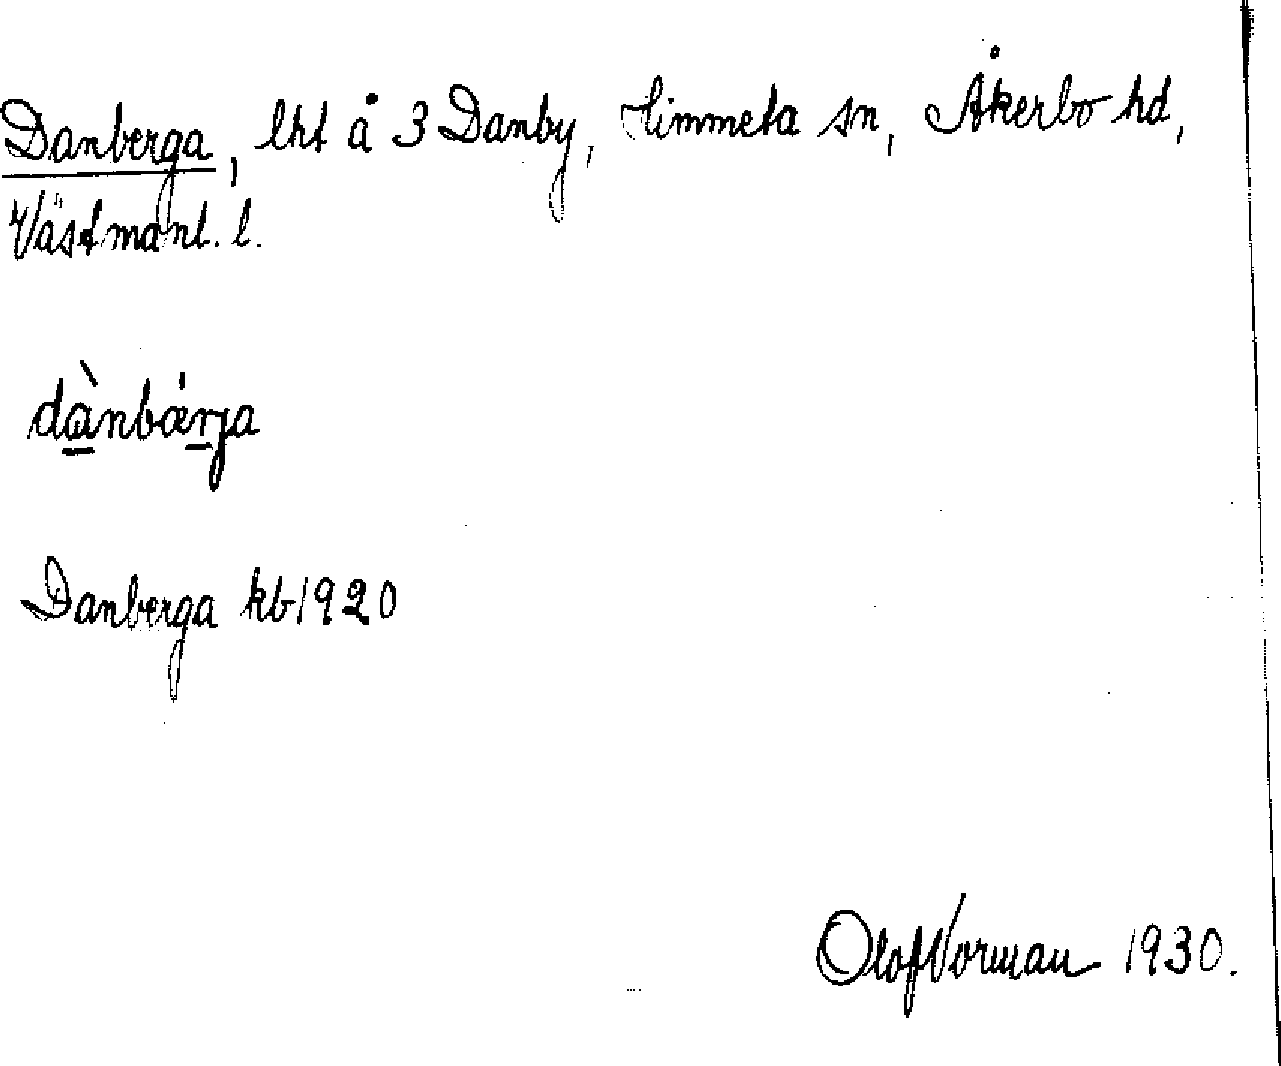 Danberga, lht å 3 Danby, Himmeta sn, Åkerbo hd,
Västmanl. l.
dànbæ̀rja
Danberga kb 1920
Olof Norman 1930.